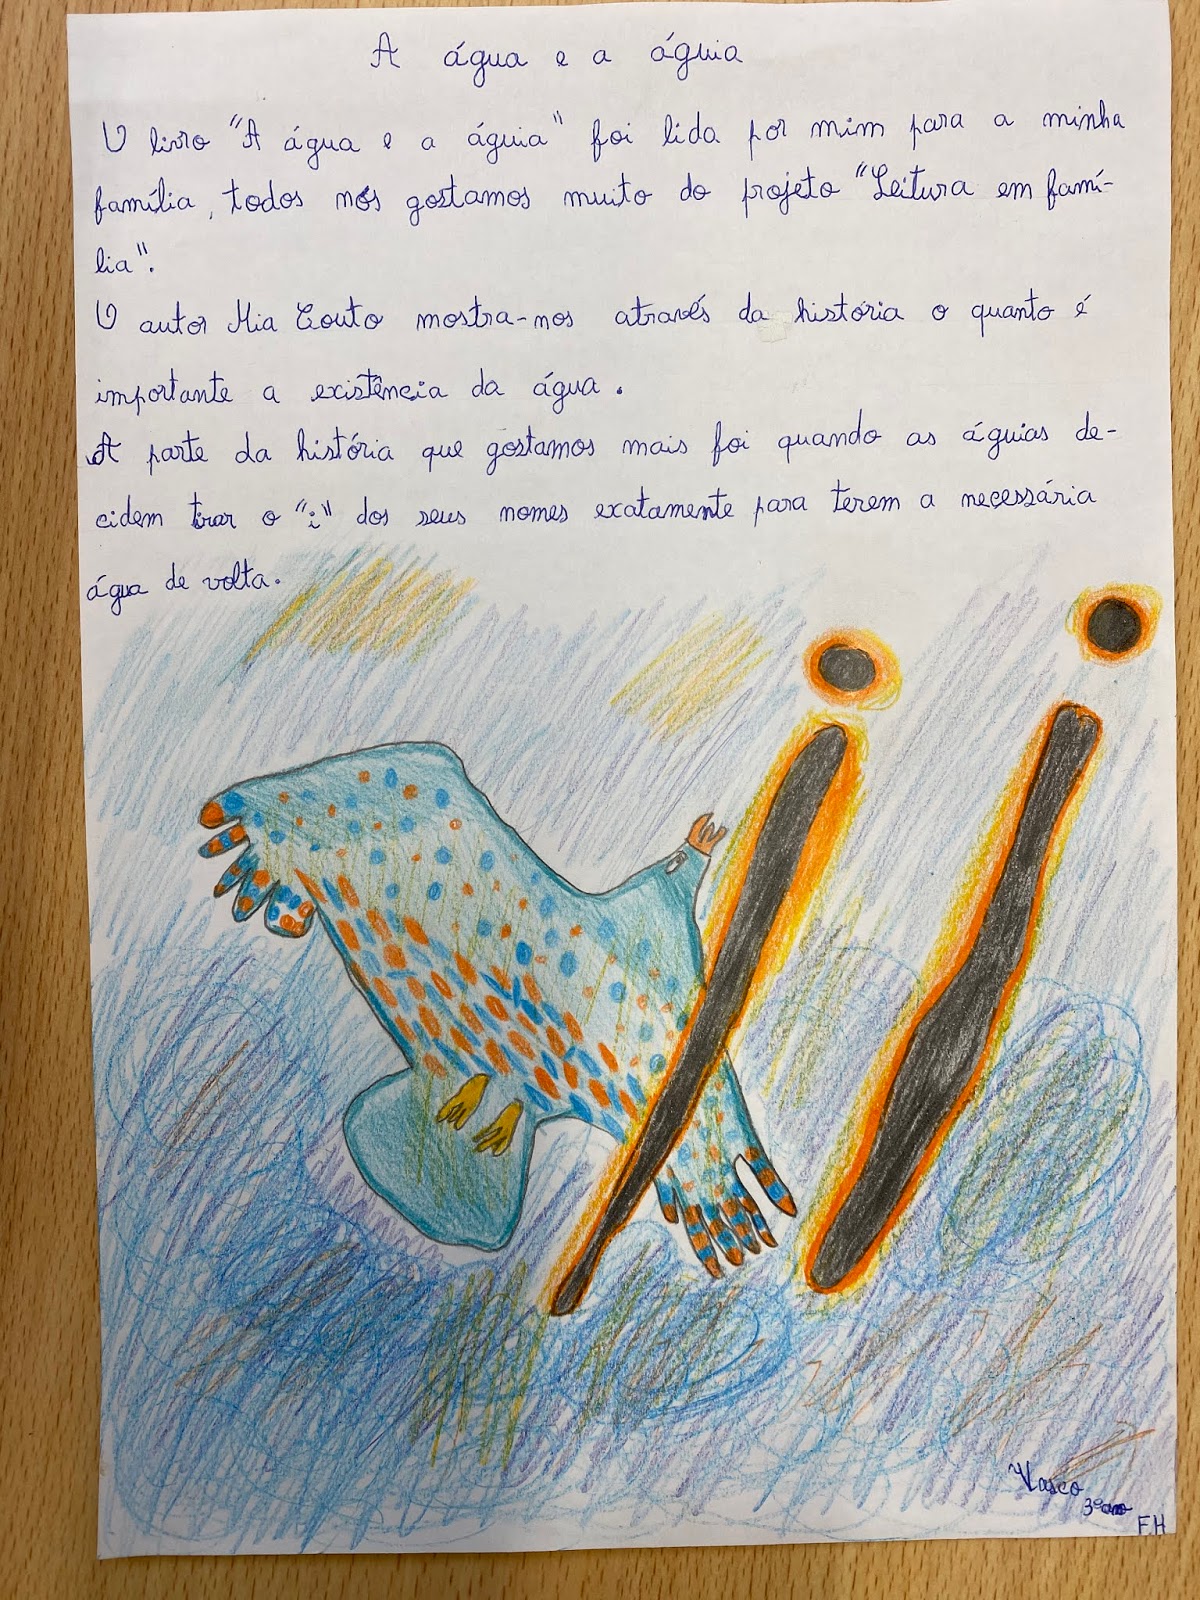 A água e a águia
O livro "A água e a águia" foi lida por mim para a minha
família, todos nós gostamos muito do projeto "Leitura em famí-
lia".
O autor Mia Couto mostra-nos através da história o quanto é
importante a existência da água.
A parte da história que gostamos mais foi quando as águias de-
cidem tirar o "i" dos seus nomes exatamente para terem a necessária
água de volta.
Vasco
3º ano
FH